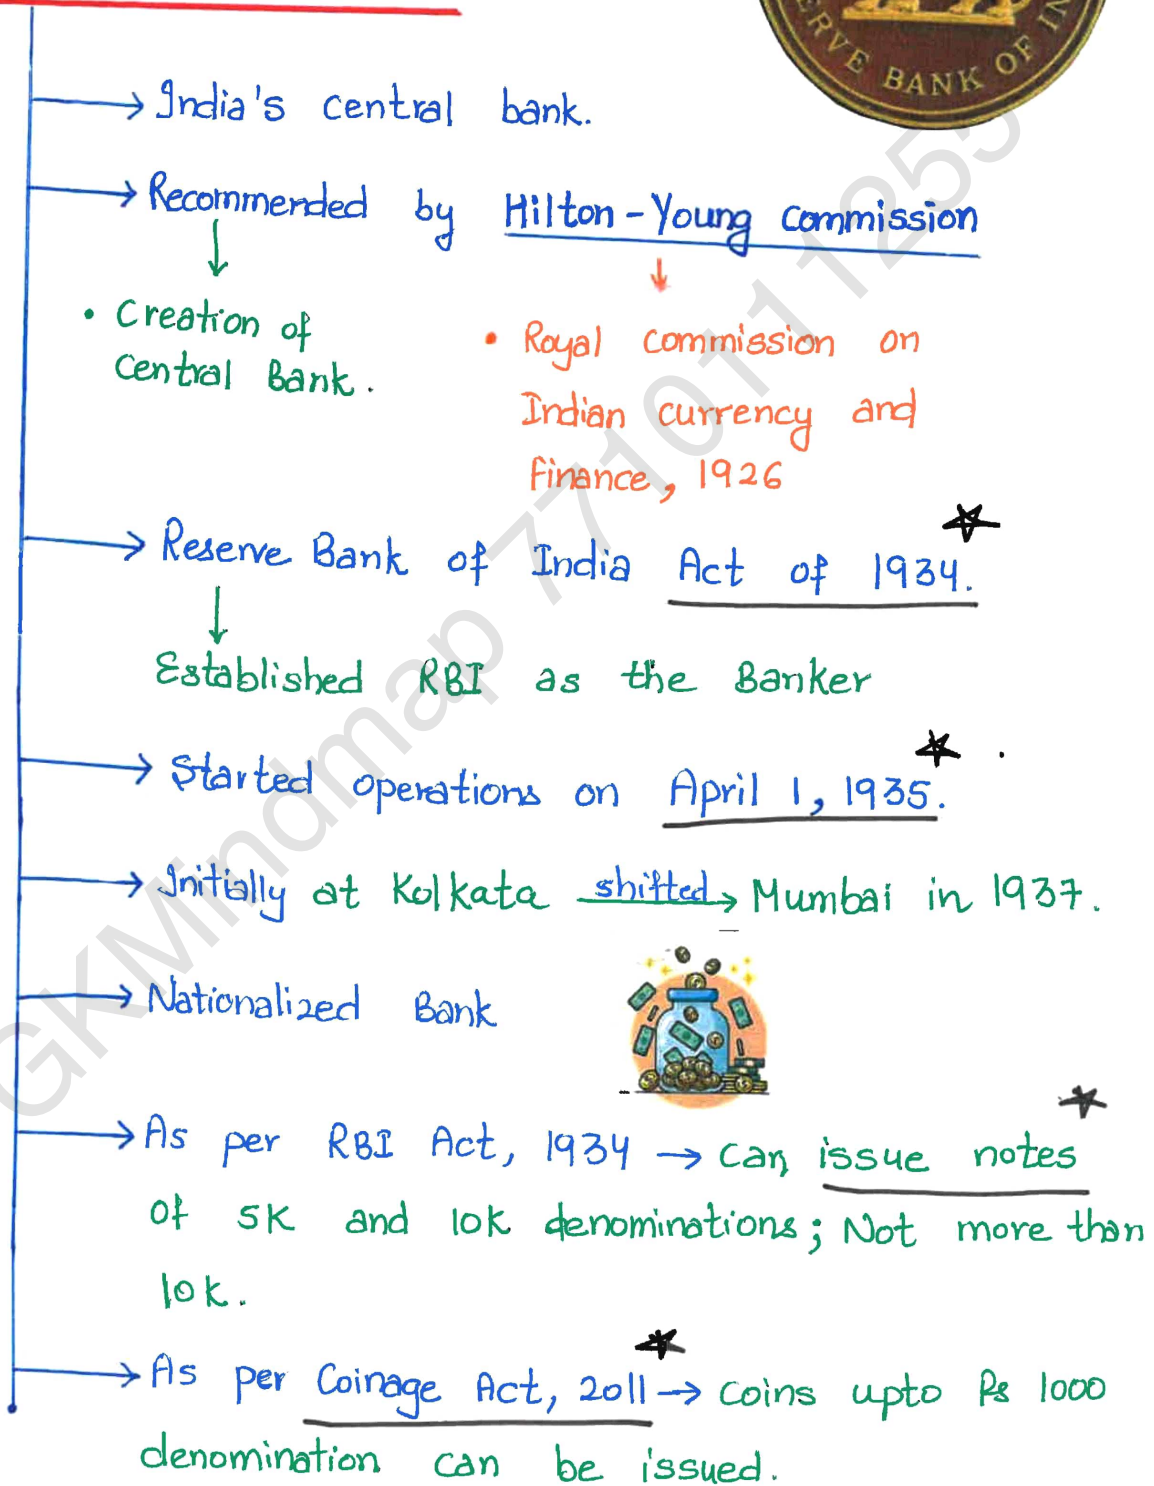 ERVE BANK OF IN
→ India's central bank.
→ Recommended by Hilton-Young commission
↓ ↓
• Creation of
Central Bank.
• Royal commission on
Indian currency and
finance, 1926
→ Reserve Bank of India Act of 1934.
↓
Established RBI as the Banker
→ Started operations on April 1, 1935.
→ Initially at Kolkata shifted→ Mumbai in 1937.
→ Nationalized Bank
→ As per RBI Act, 1934 → can issue notes
of 5K and 10K denominations; Not more than
10K.
→ As per Coinage Act, 2011 → coins upto Rs 1000
denomination can be issued.
GKMindmap 7710111255